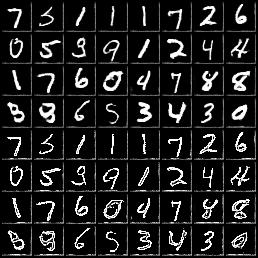 7 5 1 1 1 7 2 6
0 5 9 9 1 2 4 4
1 7 6 0 4 7 8 8
3 8 6 5 3 4 3 0
7 5 1 1 1 7 2 6
0 5 9 9 1 2 4 4
1 7 6 0 4 7 8 8
3 8 6 5 3 4 3 0